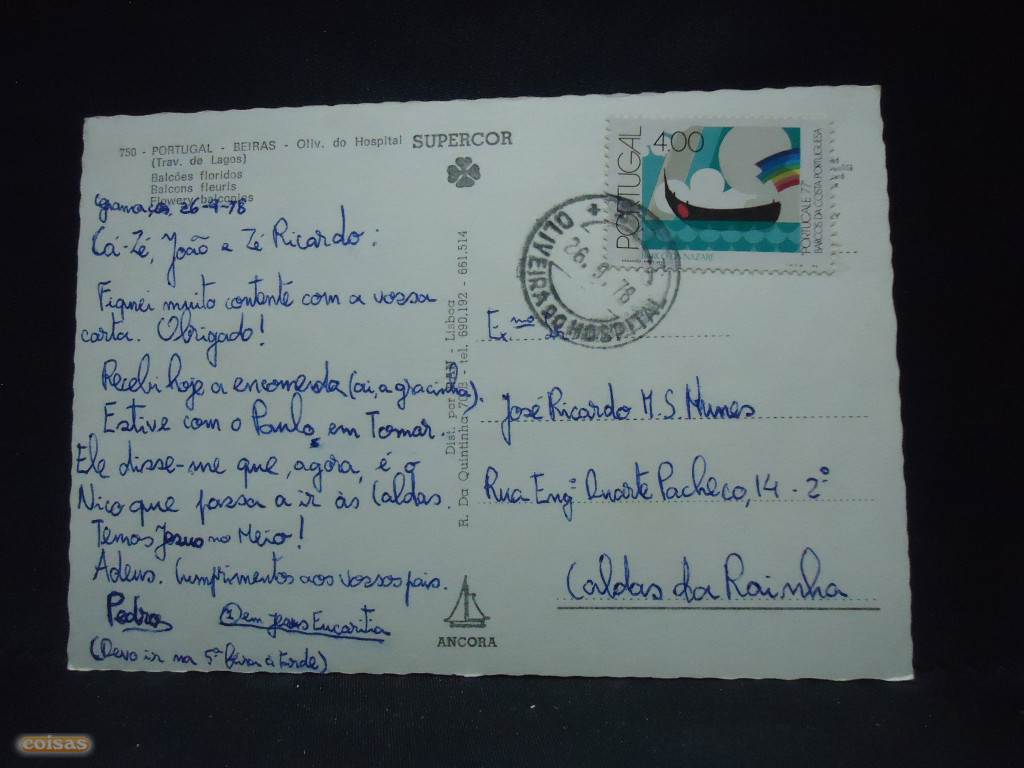 750 - PORTUGAL - BEIRAS - Oliv. do Hospital SUPERCOR
(Trav. de Lagos)
Balcões floridos
Balcons fleuris
Flowery balconies
26-9-78
Cá-Zé, João e Zé Ricardo:
Fiquei muito contente com a vossa
carta. Obrigado!
Recebi hoje a encomenda (ai, a gracinha).
Estive com o Paulo, em Tomar.
Ele disse-me que, agora, é o
Nico que passa a ir às Caldas.
Temos Jesus no Meio!
Adeus. Cumprimentos aos vossos pais.
Pedro
em Jesus
(Devo ir na 5ª feira à tarde)
R. Da Quintinha, - tel. 690.192 - 661.514
Dist. por - Lisboa
ANCORA
PORTUGAL
4.00
PORTUCALE 77
BARCOS DA COSTA PORTUGUESA
BARCO DA NAZARÉ
OLIVEIRA DO HOSPITAL
26.9.78
Ex.mo Sr.
José Ricardo M. S. Nunes
Rua Engº Duarte Pacheco, 14 - 2º
Caldas da Rainha
coisas